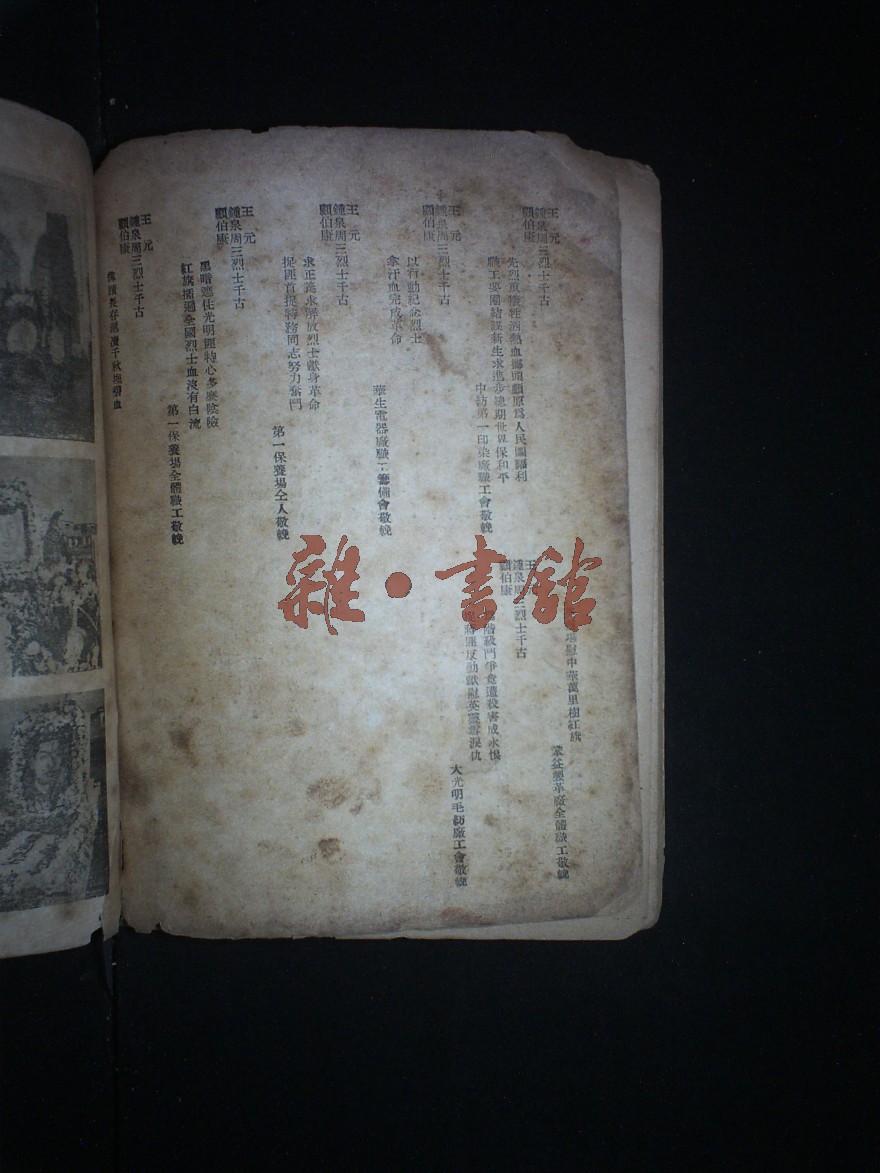 王　元
鍾泉周三烈士千古
顧伯康
先烈重犧牲洒熱血擲頭顱原為人民圖福利
職工要團結謀新生求進步總期世界保和平
中紡第一印染廠職工會敬輓
王　元
鍾泉周三烈士千古
顧伯康
以行動紀念烈士
拿汗血完成革命
華生電器廠職工籌備會敬輓
王　元
鍾泉周三烈士千古
顧伯康
求正義求解放烈士獻身革命
捉匪首捉特務同志努力奮鬥
第一保養場仝人敬輓
王　元
鍾泉周三烈士千古
顧伯康
黑暗遮住光明匪特心多麼陰險
紅旗插遍全國烈士血沒有白流
第一保養場全體職工敬輓
王　元
鍾泉周三烈士千古
顧伯康
長存浩氣千秋埋碧血
慰中華萬里樹紅旗
益製革廠全體職工敬輓
王　元
鍾泉周三烈士千古
顧伯康
階級鬥爭竟遭殺害成永恨
匪反動獻慰英靈雪深仇
大光明毛紡廠工會敬輓
雜·書館